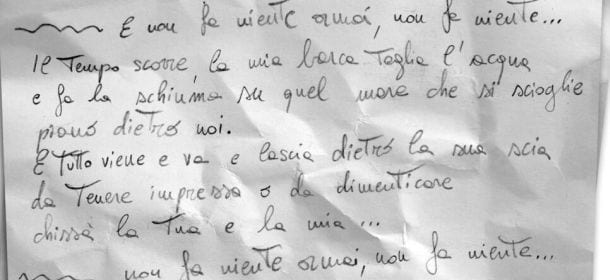 E non fa niente ormai, non fa niente...
Il Tempo scorre, la mia barca Taglia l'acqua
e fa la schiuma su quel mare che si scioglie
piano dietro noi.
E Tutto viene e va e lascia dietro la sua scia
da Tenere impressa o da dimenticare
chissà la Tua e la mia...
non fa niente ormai, non fa niente...